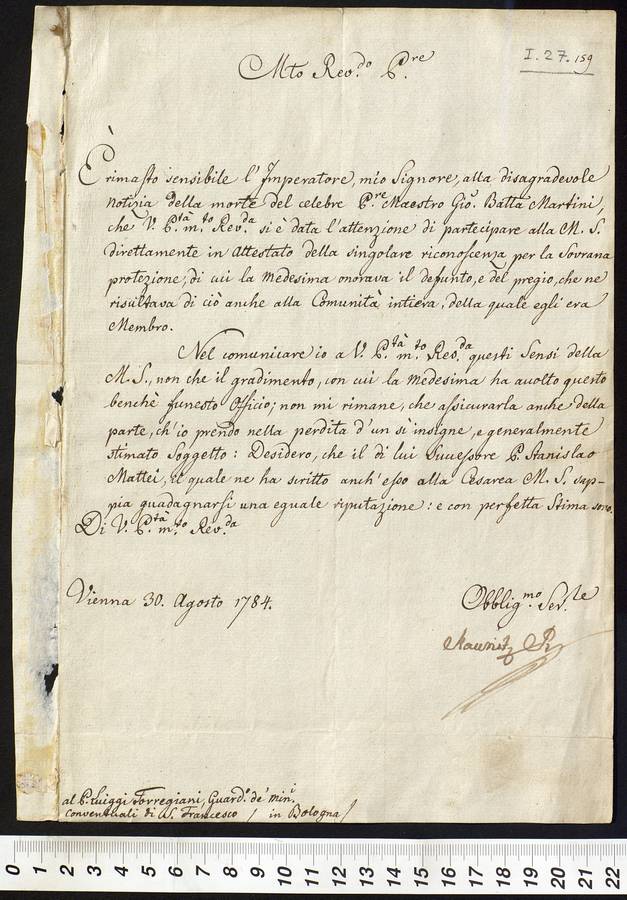 I.27.159
Mto Rev.do P.re
È rimasto sensibile l'Imperatore, mio Signore, alla disagradevole
notizia della morte del celebre P.re Maestro Gio. Batta Martini,
che V. P.tà m.to Rev.da si è data l'attenzione di partecipare alla M. S.
direttamente in Attestato della singolare riconoscenza per la Sovrana
protezione, di cui la Medesima onorava il defunto, e del pregio, che ne
risultava di ciò anche alla Comunità intiera, della quale egli era
Membro.
Nel comunicare io a V. P.tà m.to Rev.da questi Sensi della
M. S., non che il gradimento, con cui la Medesima ha accolto questo
benchè funesto Officio; non mi rimane, che assicurarla anche della
parte, ch'io prendo nella perdita d'un sì insigne, e generalmente
stimato Soggetto: Desidero, che il di lui Successore P. Stanislao
Mattei, il quale ne ha scritto anch'esso alla Cesarea M. S. sap-
pia guadagnarsi una eguale riputazione: e con perfetta Stima sono.
Di V. P.tà m.to Rev.da
Vienna 30. Agosto 1784.
Obblig.mo Ser.le
Kaunitz R
al P. Luiggi Torregiani, Guard.o de' min.i
Conventuali di S. Francesco / in Bologna /
0 1 2 3 4 5 6 7 8 9 10 11 12 13 14 15 16 17 18 19 20 21 22